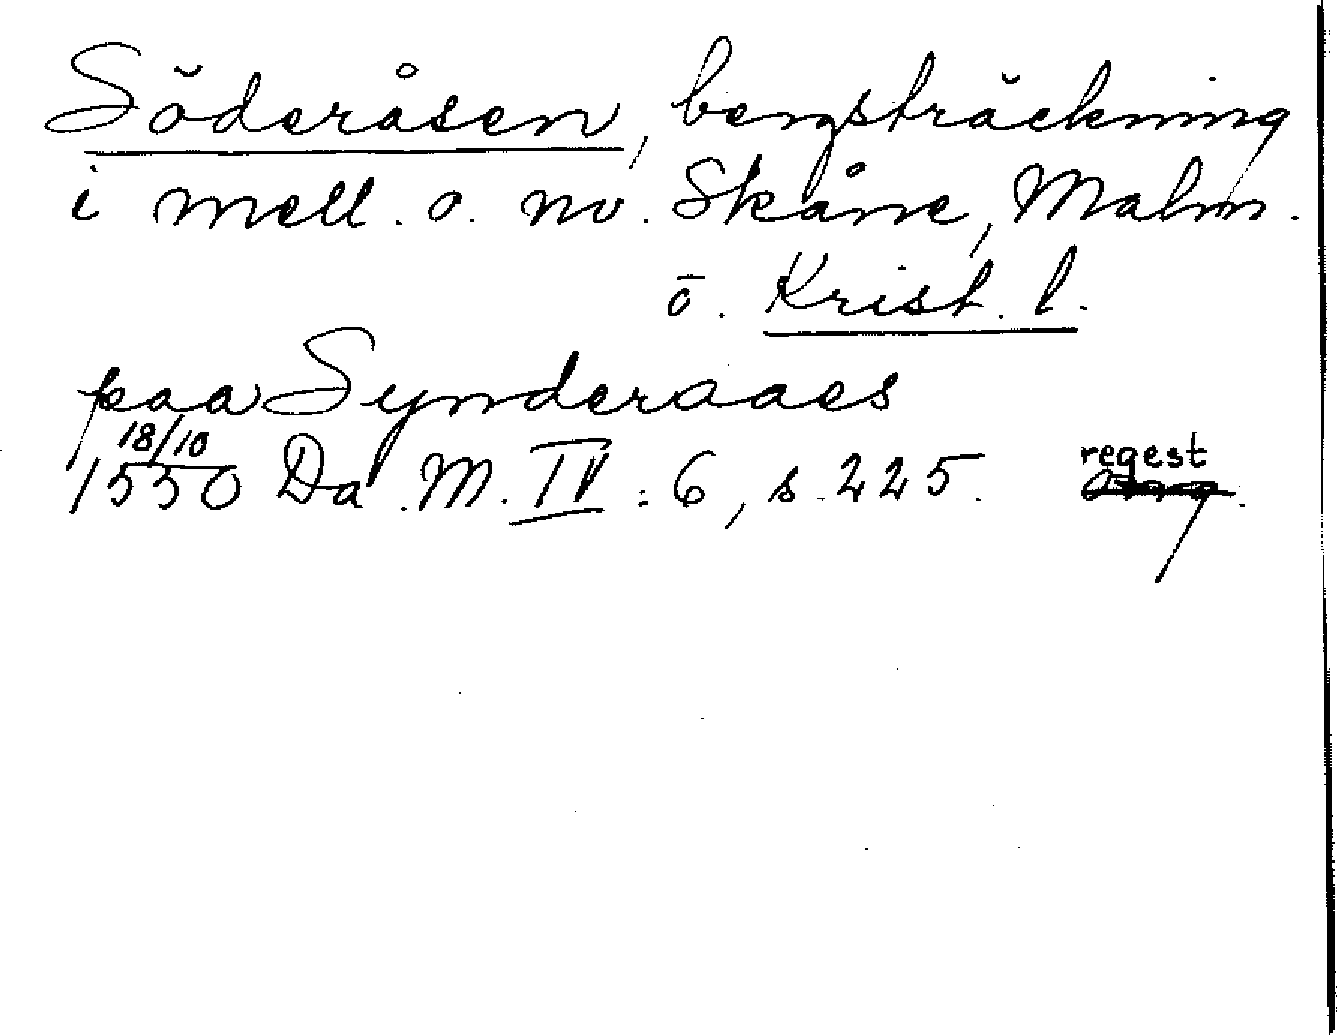 Söderåsen, bergsträckning
i mell. o. nv. Skåne, Malm.
o. Krist. l.
paa Synderaaes
18/10
1550 Da. M. IV : 6, s. 225. regest